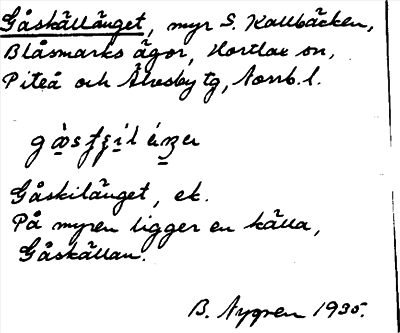 Gåskällänget, myr S. Kallbäcken,
Blåsmarks ägor, Hortlax sn,
Piteå och Älvsby tg, Norrb. l.
Gåskilänget, ek.
På myren ligger en källa,
Gåskällan.
B. Nygren 1935.